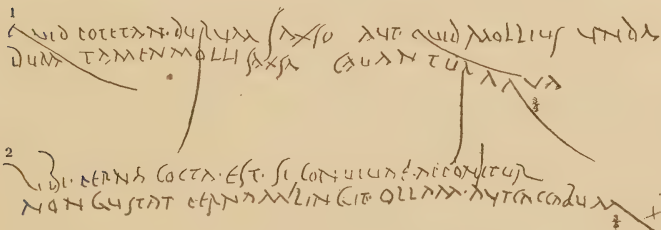 1
QUID POTE TAN DURUM SAXSO AUT QUID MOLLIUS UNDA
DURA TAMEN MOLLI SAXSA CAUANTUR AQUA
2
UBI PERNA COCTA EST SI CONUIUAE APPONITUR
NON GUSTAT PERNAM LINGIT OLLAM AUT CACCABUM